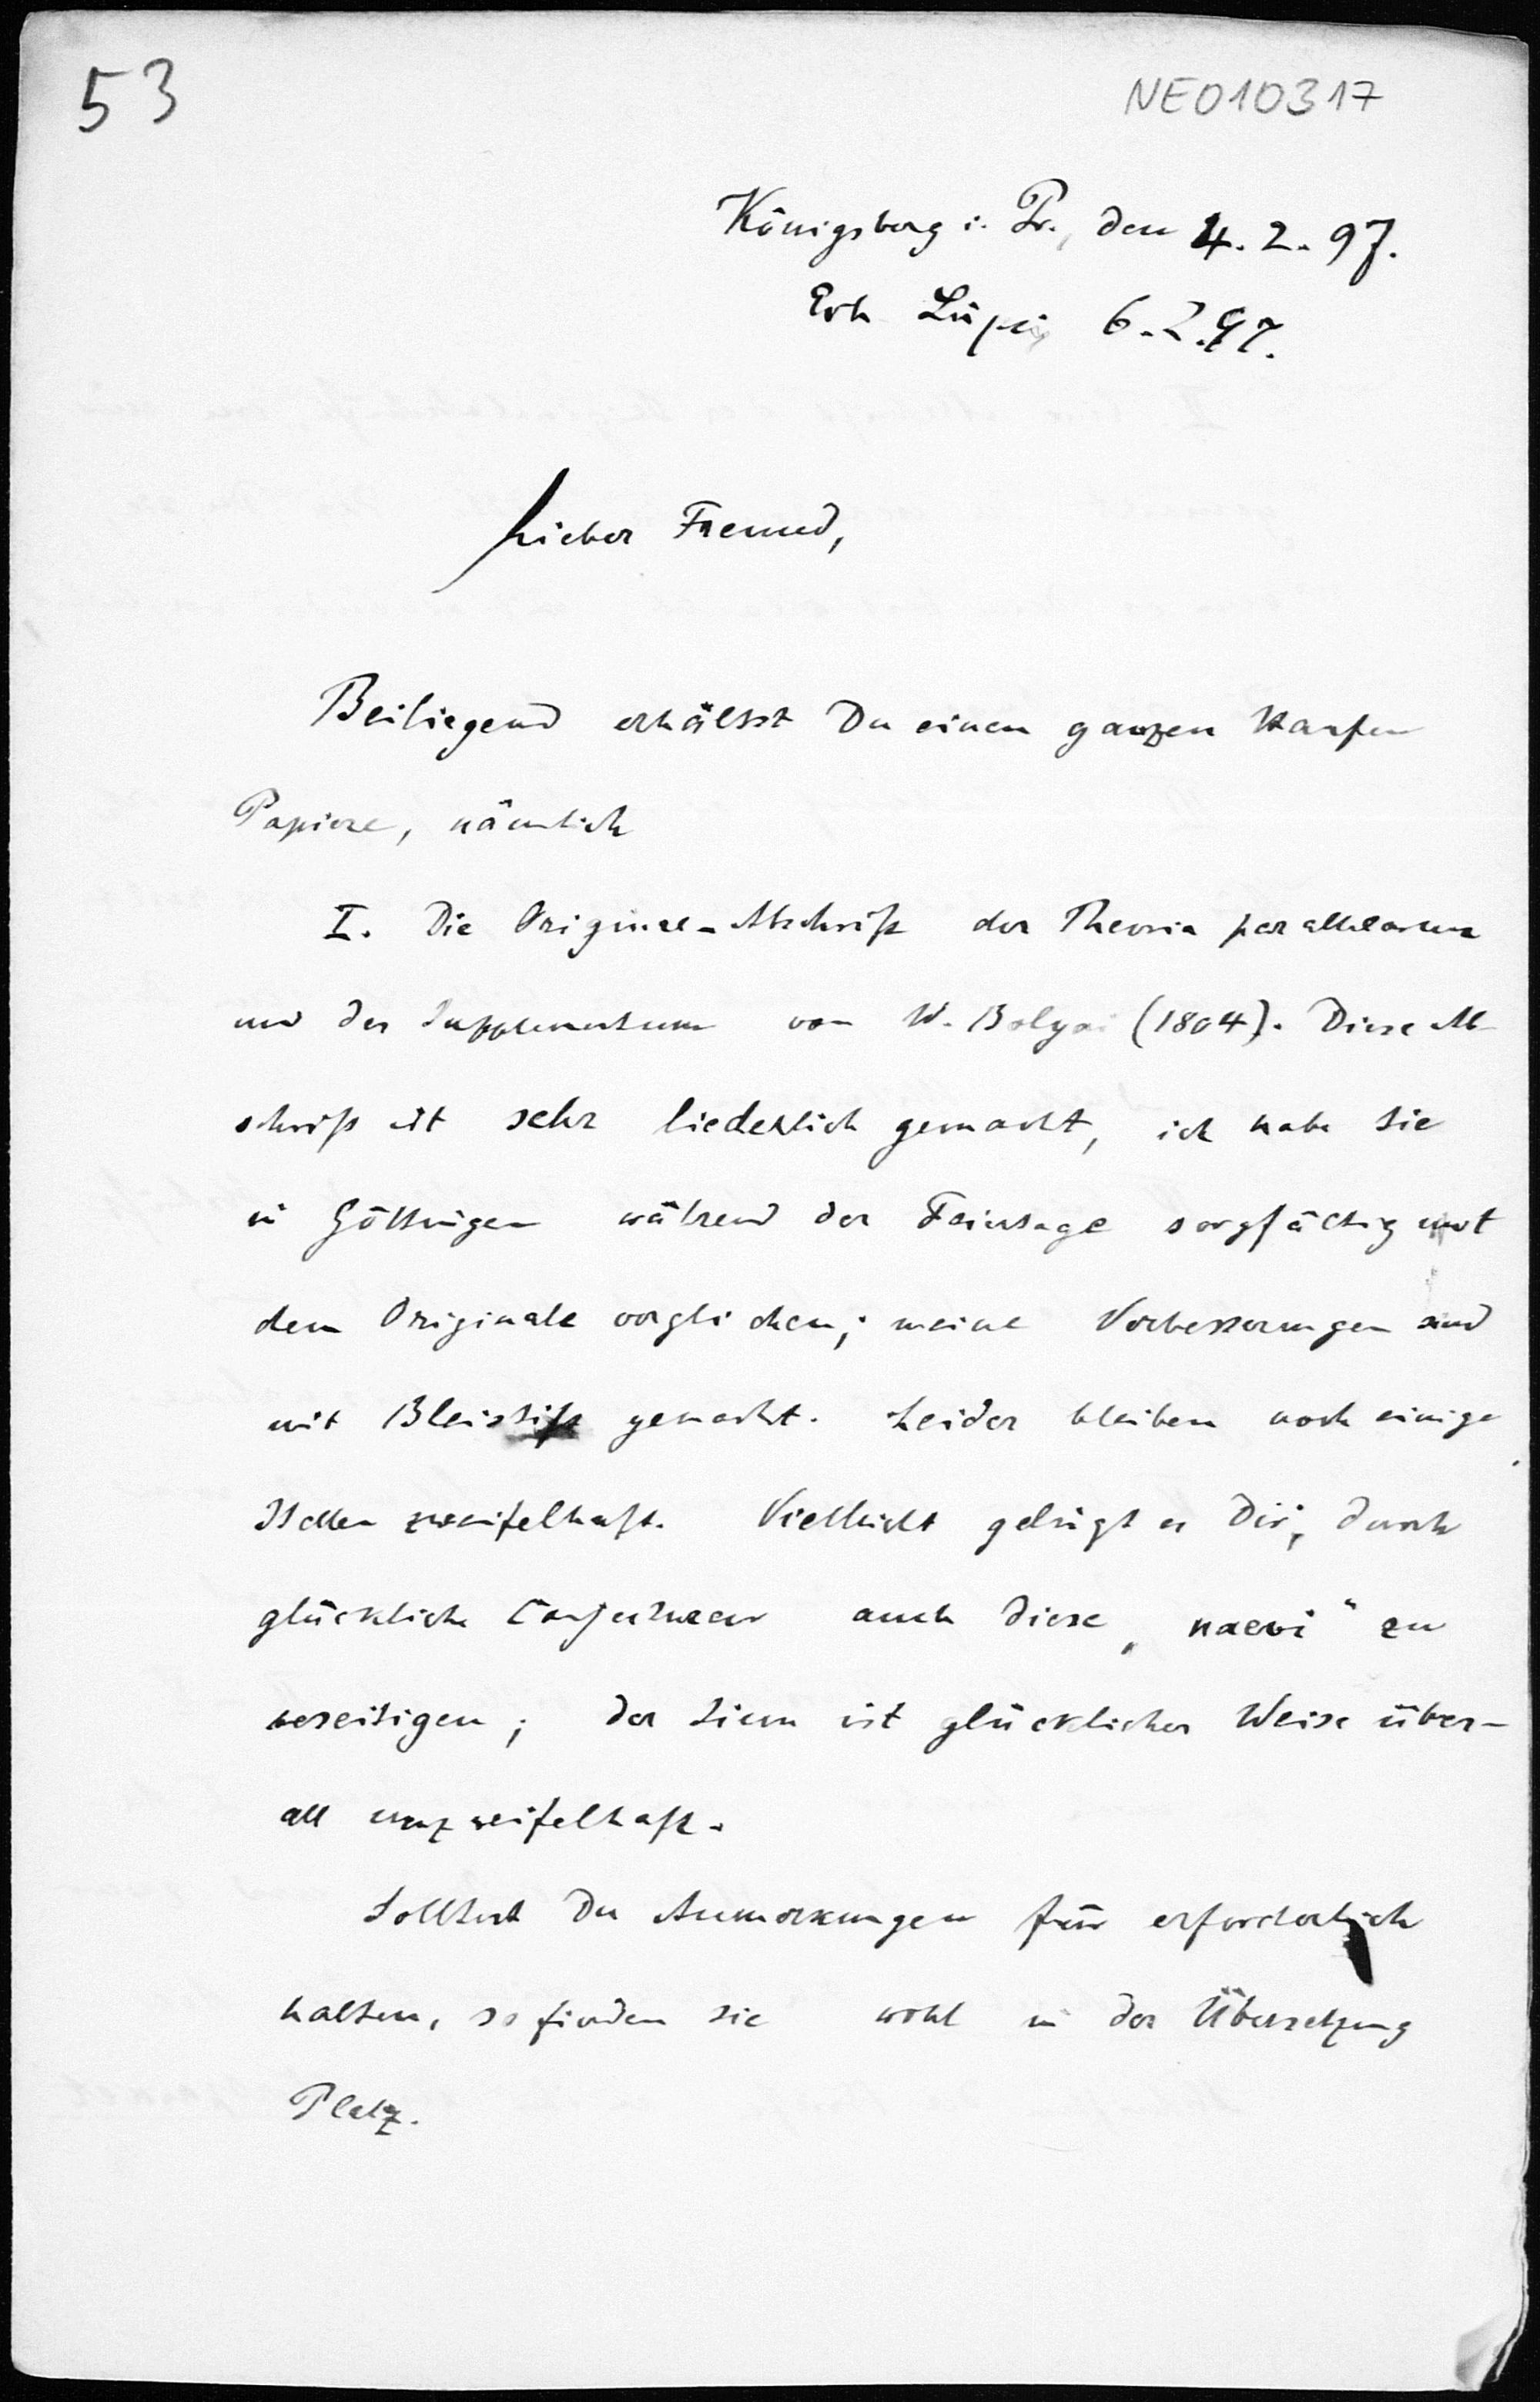 53
NE010317
Königsberg i. Pr., den 4. 2. 97.
Erh Leipzig 6. 2. 97.
Lieber Freund,
Beiliegend erhältst Du einen ganzen Haufen
Papiere, nämlich
I. Die Original-Abschrift der Theoria parallelarum
und des Supplementum von W. Bolyai (1804). Diese Ab-
schrift ist sehr liederlich gemacht, ich habe sie
in Göttingen während der Feiertage sorgfältig mit
dem Originale verglichen; meine Verbesserungen sind
mit Bleistift gemacht. Leider bleiben noch einige
Stellen zweifelhaft. Vielleicht gelingt es Dir, durch
glückliche Conjecturen auch diese „naevi“ zu
beseitigen; der Sinn ist glücklicher Weise über-
all unzweifelhaft.
Solltest Du Anmerkungen für erforderlich
halten, so finden sie wohl in der Übersetzung
Platz.